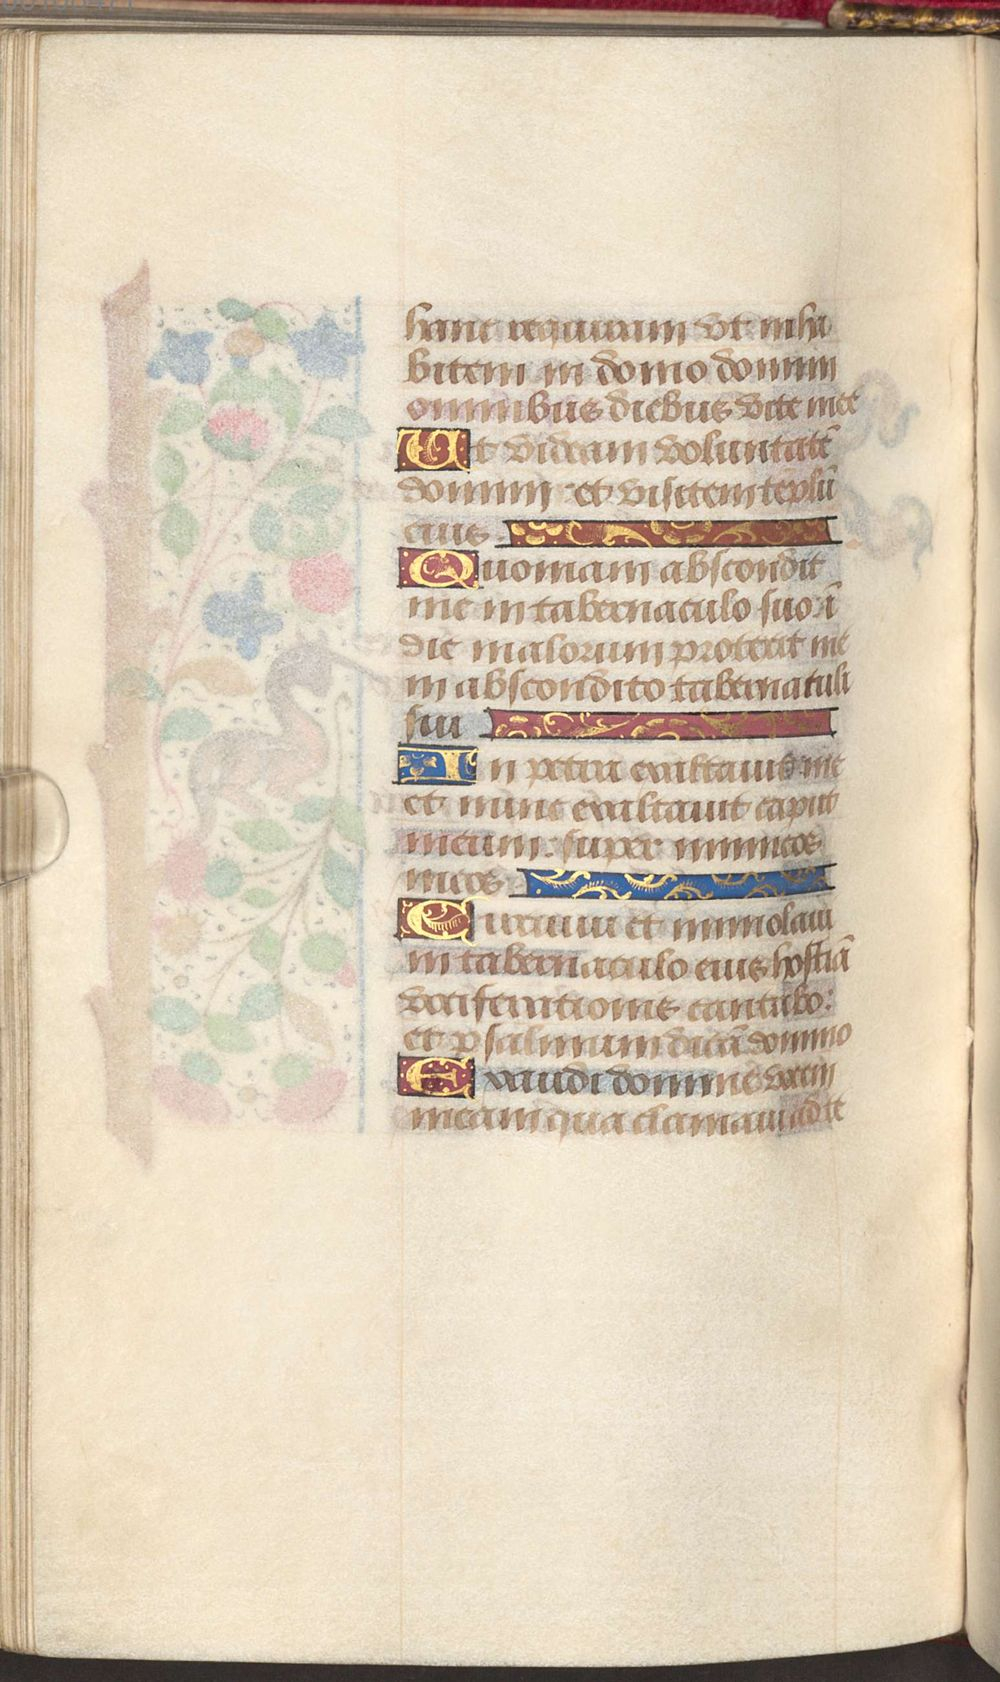 hanc requiram vt inha
bitem in domo domini
omnibus diebus vite mee
Ut videam voluntatẽ
domini et visitem tẽplũ
eius
Quoniam abscondit
me in tabernaculo suo ĩ
die malorum protexit me
in abscondito tabernaculi
sui
In petra exaltauit me
et nunc exaltauit caput
meum super inimicos
meos
Circuiui et immolaui
in tabernaculo eius hostiã
vociferationis cantabo:
et psalmum dicã domino
Exaudi domine vocem
meam qua clamaui ad te